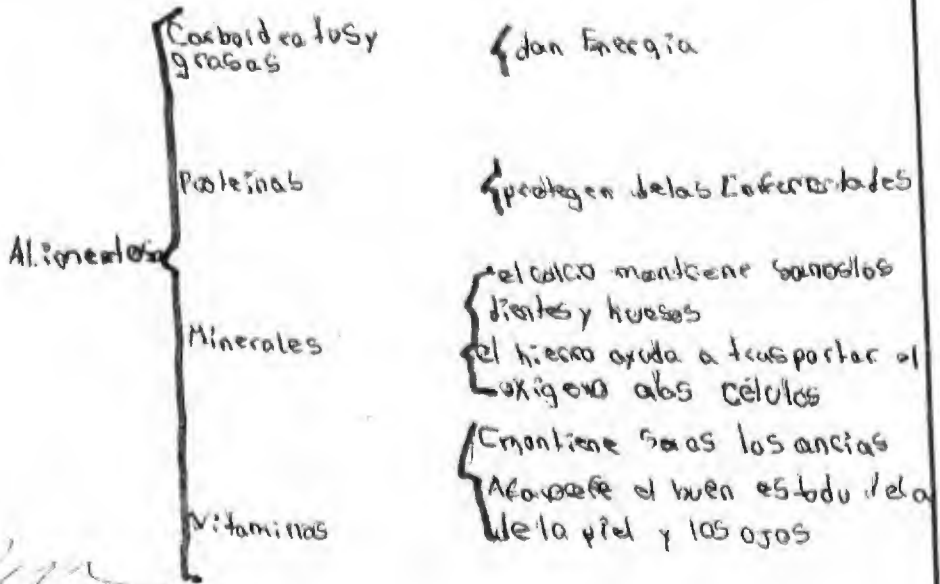 Carboidratos y
grasas
dan Energía
Proteinas
protegen delas Enfermedades
Alimentos
Minerales
el calcio mantiene sanos los
dientes y huesos
el hierro ayuda a trasportar el
oxigeno alas células
Vitaminas
C mantiene sanas las encias
A favorece el buen estado dela
de la piel y los ojos